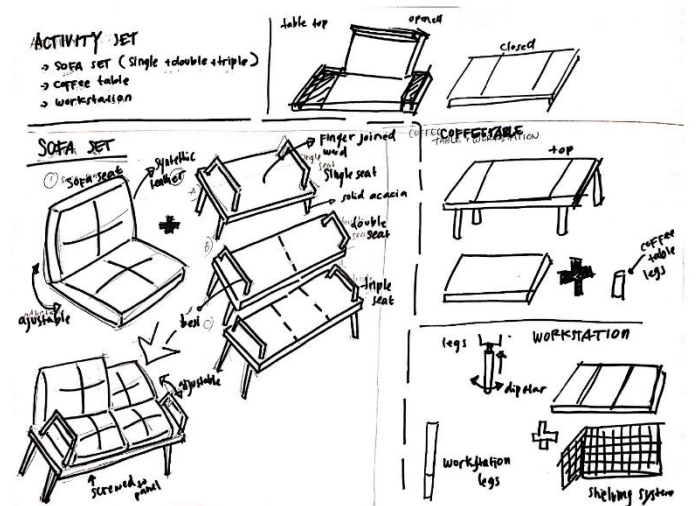 ACTIVITY SET
→ SOFA SET (single + double + triple)
→ coffee table
→ workstation
table top
opened
closed
SOFA SET
① SOFA seat
syntethic
leather
ajustable
Finger joined
wood
Single seat
solid acacia
A
B
C
double
seat
triple
seat
besi
adjustable
screwed to
panel
COFFEETABLE
TABLE + WORKSTATION
top
coffee
table
legs
WORKSTATION
legs
diputar
workstation
legs
shielving system